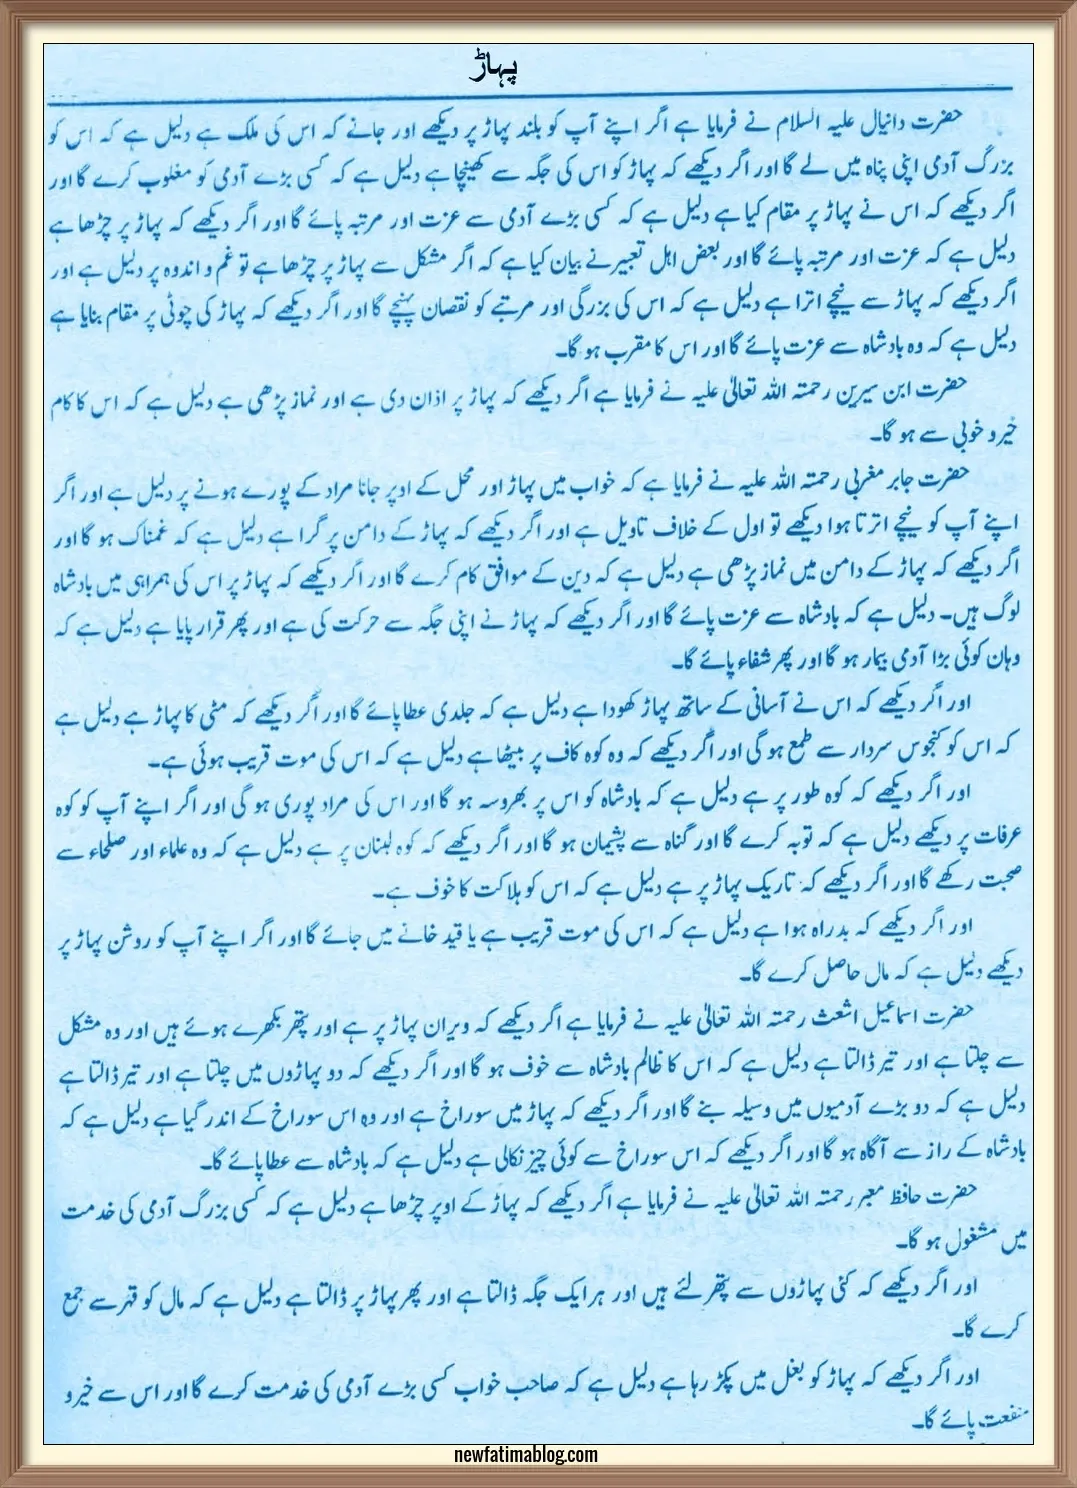 پہاڑ
حضرت دانیال علیہ السلام نے فرمایا ہے اگر اپنے آپ کو بلند پہاڑ پر دیکھے اور جانے کہ اس کی ملک ہے دلیل ہے کہ اس کو
بزرگ آدمی اپنی پناہ میں لے گا اور اگر دیکھے کہ پہاڑ کو اس کی جگہ سے کھینچا ہے دلیل ہے کہ کسی بڑے آدمی کو مغلوب کرے گا اور
اگر دیکھے کہ اس نے پہاڑ پر مقام کیا ہے دلیل ہے کہ کسی بڑے آدمی سے عزت اور مرتبہ پائے گا اور اگر دیکھے کہ پہاڑ پر چڑھا ہے
دلیل ہے کہ عزت اور مرتبہ پائے گا اور بعض اہل تعبیر نے بیان کیا ہے کہ اگر مشکل سے پہاڑ پر چڑھا ہے تو غم و اندوہ پر دلیل ہے اور
اگر دیکھے کہ پہاڑ سے نیچے اترا ہے دلیل ہے کہ اس کی بزرگی اور مرتبے کو نقصان پہنچے گا اور اگر دیکھے کہ پہاڑ کی چوٹی پر مقام بنایا ہے
دلیل ہے کہ وہ بادشاہ سے عزت پائے گا اور اس کا مقرب ہو گا۔
حضرت ابن سیرین رحمتہ اللہ تعالیٰ علیہ نے فرمایا ہے اگر دیکھے کہ پہاڑ پر اذان دی ہے اور نماز پڑھی ہے دلیل ہے کہ اس کا کام
خیر و خوبی سے ہو گا۔
حضرت جابر مغربی رحمتہ اللہ علیہ نے فرمایا ہے کہ خواب میں پہاڑ اور محل کے اوپر جانا مراد کے پورے ہونے پر دلیل ہے اور اگر
اپنے آپ کو نیچے اترتا ہوا دیکھے تو اول کے خلاف تاویل ہے اور اگر دیکھے کہ پہاڑ کے دامن پر گرا ہے دلیل ہے کہ غمناک ہو گا اور
اگر دیکھے کہ پہاڑ کے دامن میں نماز پڑھی ہے دلیل ہے کہ دین کے موافق کام کرے گا اور اگر دیکھے کہ پہاڑ پر اس کی ہمراہی میں بادشاہ
لوگ ہیں۔ دلیل ہے کہ بادشاہ سے عزت پائے گا اور اگر دیکھے کہ پہاڑ نے اپنی جگہ سے حرکت کی ہے اور پھر قرار پایا ہے دلیل ہے کہ
وہان کوئی بڑا آدمی بیمار ہو گا اور پھر شفاء پائے گا۔
اور اگر دیکھے کہ اس نے آسانی کے ساتھ پہاڑ کھودا ہے دلیل ہے کہ جلدی عطا پائے گا اور اگر دیکھے کہ مٹی کا پہاڑ ہے دلیل ہے
کہ اس کو کنجوس سردار سے طمع ہو گی اور اگر دیکھے کہ وہ کوہ کاف پر بیٹھا ہے دلیل ہے کہ اس کی موت قریب ہوئی ہے۔
اور اگر دیکھے کہ کوہ طور پر ہے دلیل ہے کہ بادشاہ کو اس پر بھروسہ ہو گا اور اس کی مراد پوری ہو گی اور اگر اپنے آپ کو کوہ
عرفات پر دیکھے دلیل ہے کہ توبہ کرے گا اور گناہ سے پشیمان ہو گا اور اگر دیکھے کہ کوہ لبنان پر ہے دلیل ہے کہ وہ علماء اور صلحاء سے
صحبت رکھے گا اور اگر دیکھے کہ تاریک پہاڑ پر ہے دلیل ہے کہ اس کو ہلاکت کا خوف ہے۔
اور اگر دیکھے کہ بدراہ ہوا ہے دلیل ہے کہ اس کی موت قریب ہے یا قید خانے میں جائے گا اور اگر اپنے آپ کو روشن پہاڑ پر
دیکھے دلیل ہے کہ مال حاصل کرے گا۔
حضرت اسماعیل اشعث رحمتہ اللہ تعالیٰ علیہ نے فرمایا ہے اگر دیکھے کہ ویران پہاڑ پر ہے اور پتھر بکھرے ہوئے ہیں اور وہ مشکل
سے چلتا ہے اور تیر ڈالتا ہے دلیل ہے کہ اس کا ظالم بادشاہ سے خوف ہو گا اور اگر دیکھے کہ دو پہاڑوں میں چلتا ہے اور تیر ڈالتا ہے
دلیل ہے کہ دو بڑے آدمیوں میں وسیلہ بنے گا اور اگر دیکھے کہ پہاڑ میں سوراخ ہے اور وہ اس سوراخ کے اندر گیا ہے دلیل ہے کہ
بادشاہ کے راز سے آگاہ ہو گا اور اگر دیکھے کہ اس سوراخ سے کوئی چیز نکالی ہے دلیل ہے کہ بادشاہ سے عطا پائے گا۔
حضرت حافظ معبر رحمتہ اللہ تعالیٰ علیہ نے فرمایا ہے اگر دیکھے کہ پہاڑ کے اوپر چڑھا ہے دلیل ہے کہ کسی بزرگ آدمی کی خدمت
میں مشغول ہو گا۔
اور اگر دیکھے کہ کئی پہاڑوں سے پتھر لئے ہیں اور ہر ایک جگہ ڈالتا ہے اور پھر پہاڑ پر ڈالتا ہے دلیل ہے کہ مال کو قہر سے جمع
کرے گا۔
اور اگر دیکھے کہ پہاڑ کو بغل میں پکڑ رہا ہے دلیل ہے کہ صاحب خواب کسی بڑے آدمی کی خدمت کرے گا اور اس سے خیر و
منفعت پائے گا۔
newfatimablog.com